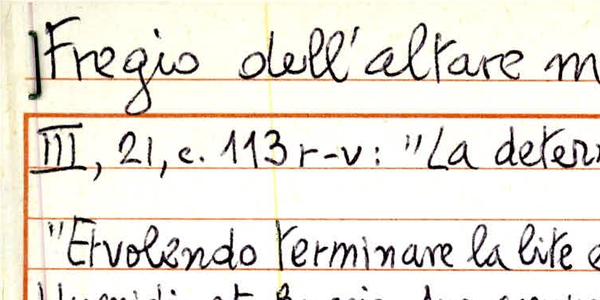 Fregio dell'altare m
III, 21, c. 113 r-v: "La deter
"Et volendo terminare la lite